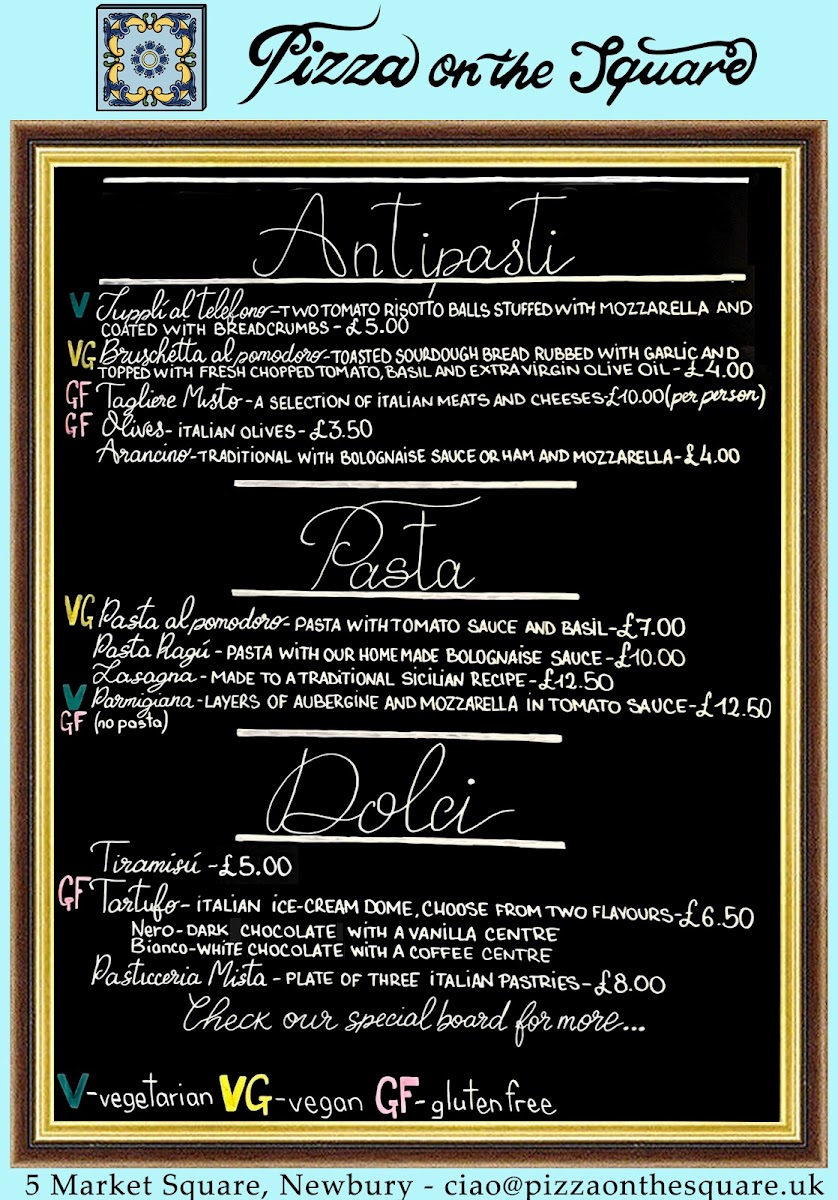 Pizza on the Square
Antipasti
V Supplí al telefono-TWO TOMATO RISOTTO BALLS STUFFED WITH MOZZARELLA AND
COATED WITH BREADCRUMBS - £5.00
VG Bruschetta al pomodoro-TOASTED SOURDOUGH BREAD RUBBED WITH GARLIC AND
TOPPED WITH FRESH CHOPPED TOMATO, BASIL AND EXTRA VIRGIN OLIVE OIL - £4.00
GF Tagliere Misto-A SELECTION OF ITALIAN MEATS AND CHEESES-£10.00(per person)
GF Olives-ITALIAN OLIVES-£3.50
Arancino-TRADITIONAL WITH BOLOGNAISE SAUCE OR HAM AND MOZZARELLA-£4.00
Pasta
VG Pasta al pomodoro-PASTA WITH TOMATO SAUCE AND BASIL-£7.00
Pasta Ragú-PASTA WITH OUR HOMEMADE BOLOGNAISE SAUCE-£10.00
Lasagna-MADE TO A TRADITIONAL SICILIAN RECIPE-£12.50
V Parmigiana-LAYERS OF AUBERGINE AND MOZZARELLA IN TOMATO SAUCE-£12.50
GF (no pasta)
Dolci
Tiramisú-£5.00
GF Tartufo-ITALIAN ICE-CREAM DOME, CHOOSE FROM TWO FLAVOURS-£6.50
Nero-DARK CHOCOLATE WITH A VANILLA CENTRE
Bianco-WHITE CHOCOLATE WITH A COFFEE CENTRE
Pasticceria Mista-PLATE OF THREE ITALIAN PASTRIES-£8.00
Check our special board for more...
V-vegetarian VG-vegan GF-gluten free
5 Market Square, Newbury - ciao@pizzaonthesquare.uk